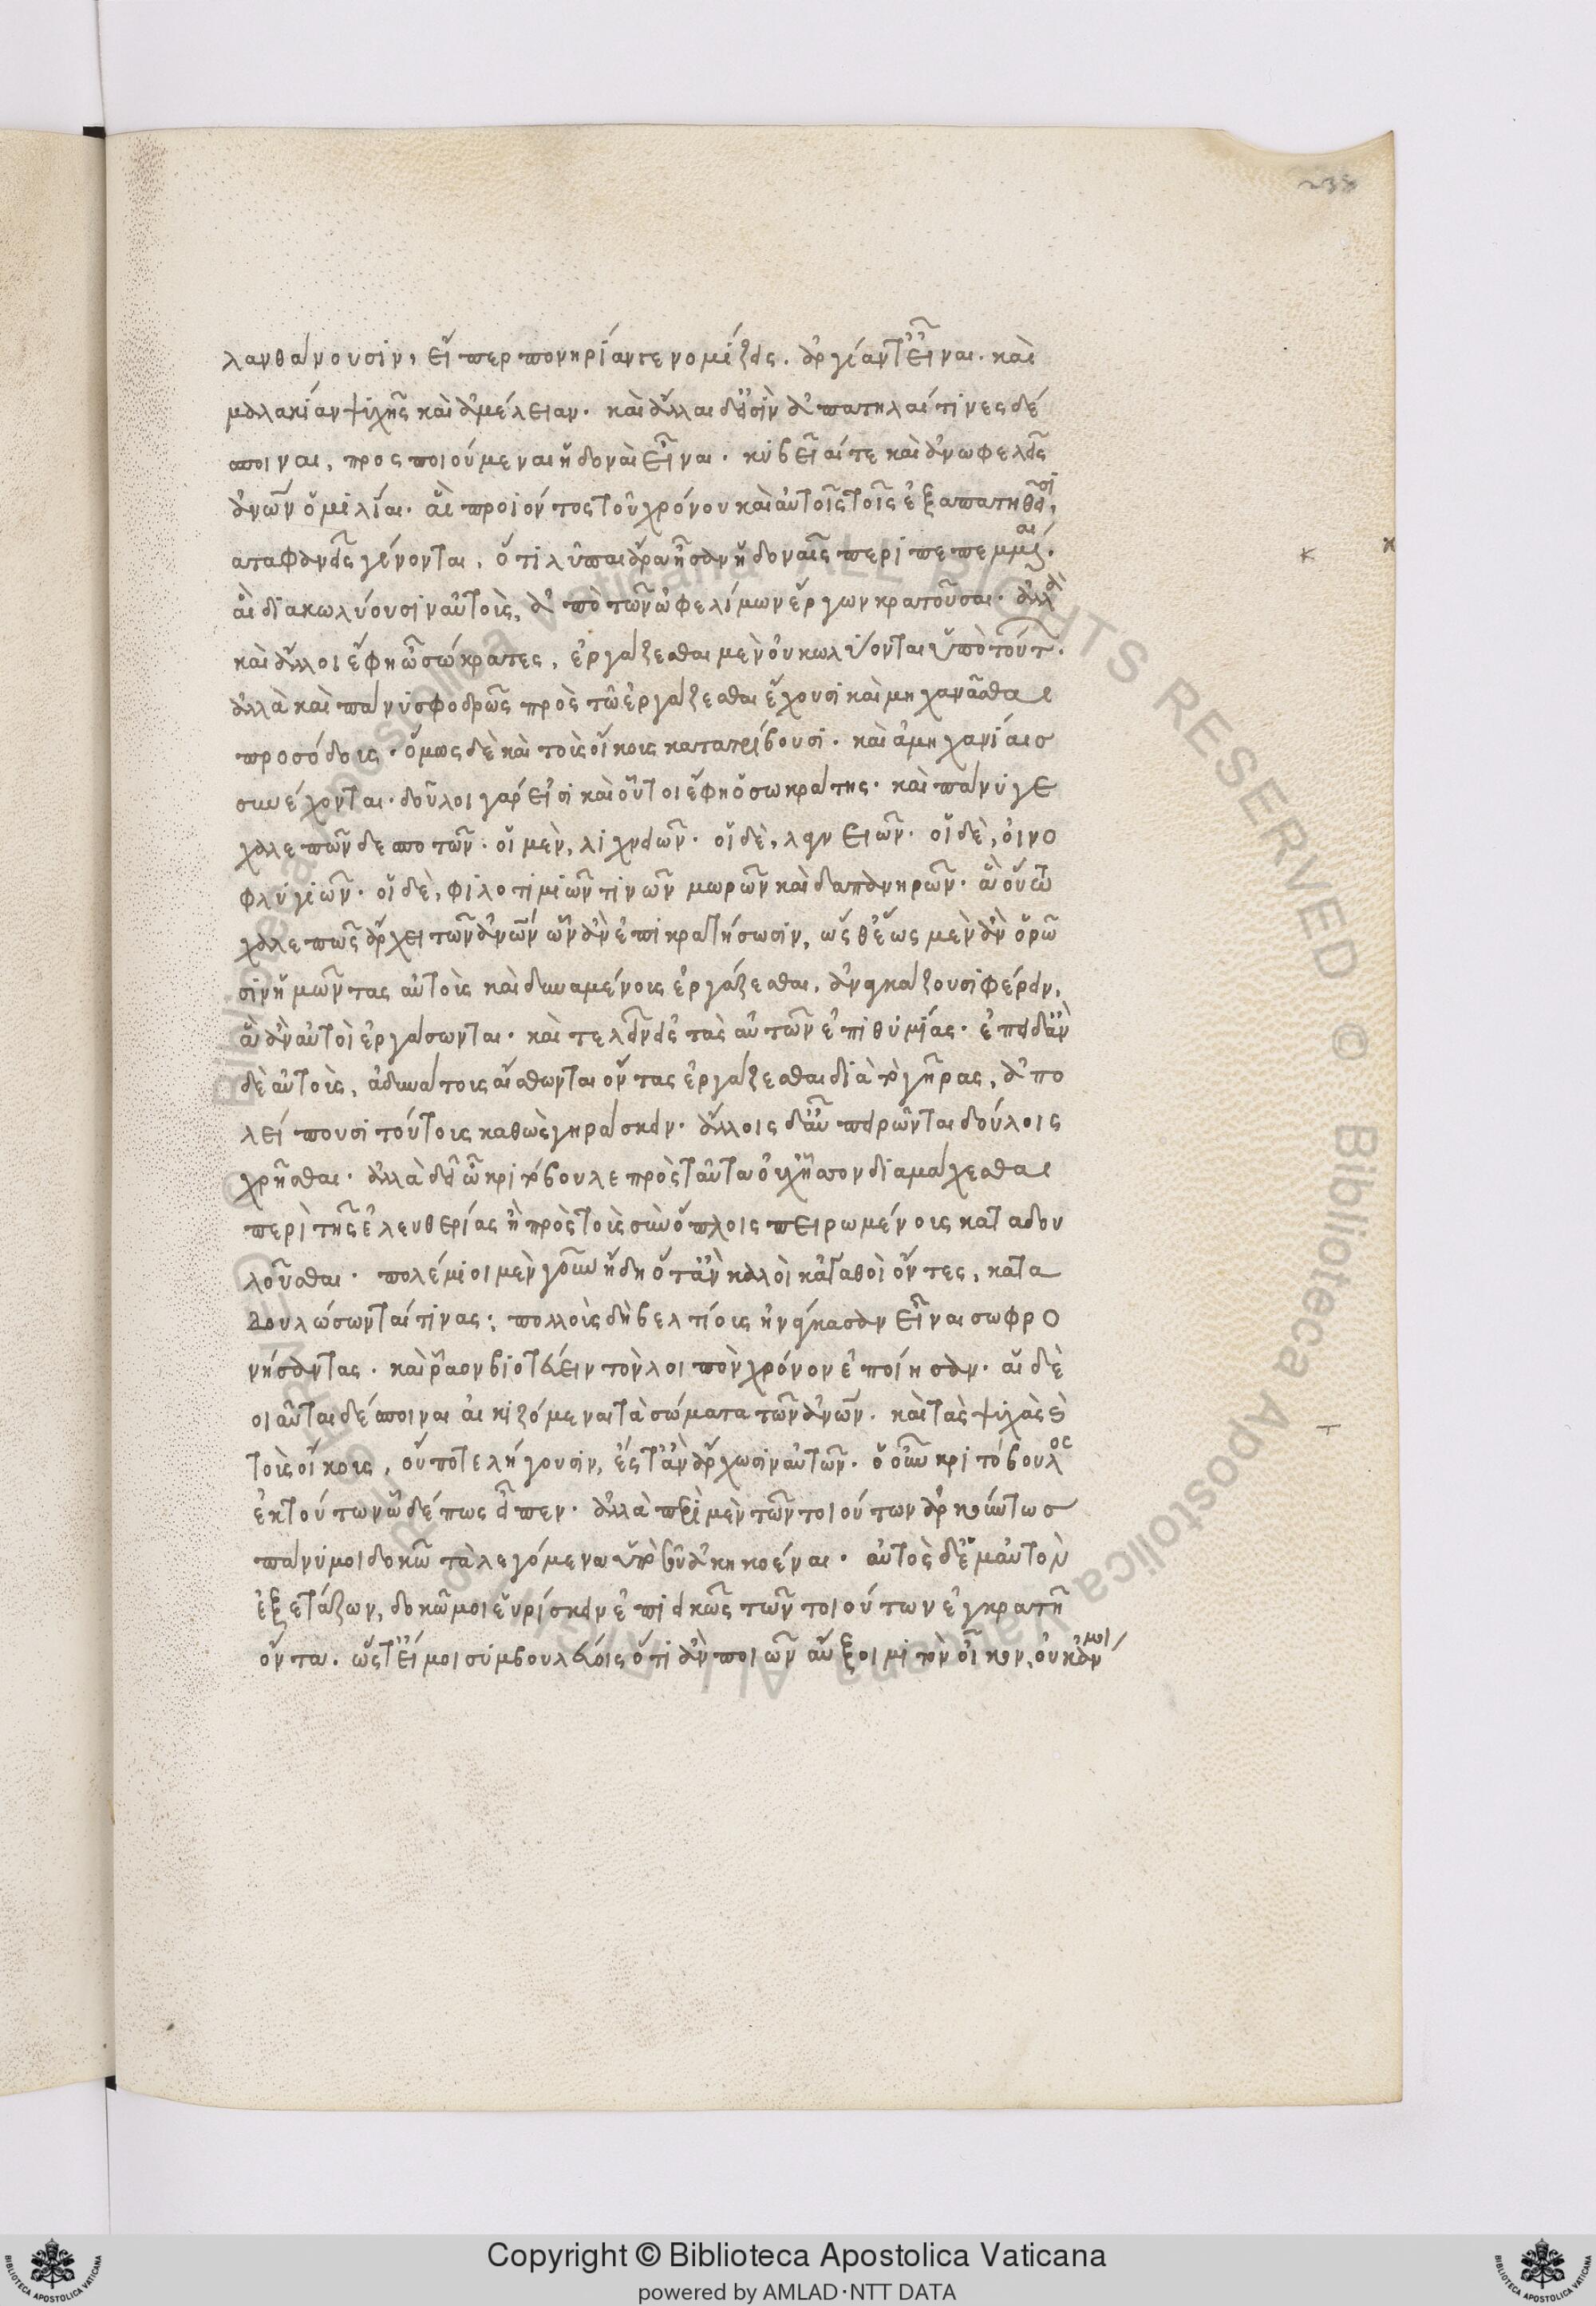 238
λανθάνουσιν, εἴπερ πονηρίαν τε νομίζεις. ἀργίαν τ' εἶναι. καὶ
μαλακίαν ψυχῆς καὶ ἀμέλειαν. καὶ ἄλλαι δ' εἰσὶν ἀπατηλαί τινες δέ
σποιναι, προσποιούμεναι ἡδοναὶ εἶναι. κυβεῖαί τε καὶ ἀνωφελεῖς
ἀνων ὁμιλίαι. αἳ προϊόντος τοῦ χρόνου καὶ αὐτοῖς τοῖς ἐξαπατηθεῖσι,
καταφανεῖς γίνονται, ὅτι λῦπαι ἄρα ἦσαν ἡδοναῖς περιπεπεμμέναι.
αἳ διακωλύουσιν αὐτοὺς, ἀπὸ τῶν ὠφελίμων ἔργων κρατοῦσαι. ἀλλὰ
καὶ ἄλλοι ἔφη ὦ σώκρατες, ἐργάζεσθαι μὲν οὐ κωλύονται ὑπὸ τούτων.
ἀλλὰ καὶ πάνυ σφοδρῶς πρὸς τῷ ἐργάζεσθαι ἔχουσι καὶ μηχανᾶσθαι
προσόδους. ὅμως δὲ καὶ τοὺς οἴκους κατατρίβουσι. καὶ ἀμηχανίαις
συνέχονται. δοῦλοι γάρ εἰσι καὶ οὗτοι ἔφη ὁ σωκράτης. καὶ πάνυ γε
χαλεπῶν δεσποτῶν. οἱ μὲν, λιχνειῶν. οἱ δὲ, λαγνειῶν. οἱ δὲ, οἰνο
φλυγιῶν. οἱ δὲ, φιλοτιμιῶν τινῶν μωρῶν καὶ δαπανηρῶν. ἃ οὕτω
χαλεπῶς ἄρχει τῶν ἀνων ὧν ἂν ἐπικρατήσωσιν, ὥσθ' ἕως μὲν ἂν ὁρῶ
σιν ἡβῶντας αὐτοὺς καὶ δυναμένους ἐργάζεσθαι, ἀναγκάζουσι φέρειν,
ἃ ἂν αὐτοὶ ἐργάσωνται. καὶ τελεῖν εἰς τὰς αὐτῶν ἐπιθυμίας. ἐπειδὰν
δὲ αὐτοὺς, ἀδυνάτους αἴσθωνται ὄντας ἐργάζεσθαι διὰ τὸ γῆρας, ἀπο
λείπουσι τούτους κακῶς γηράσκειν. ἄλλοις δ' αὖ πειρῶνται δούλοις
χρῆσθαι. ἀλλὰ δεῖ ὦ κριτόβουλε πρὸς ταῦτα οὐχ ἧττον διαμάχεσθαι
περὶ τῆς ἐλευθερίας ἢ πρὸς τοὺς σὺν ὅπλοις πειρωμένους καταδου
λοῦσθαι. πολέμιοι μὲν γοῦν ἤδη ὅταν καλοὶ κἀγαθοὶ ὄντες, κατα
δουλώσωνταί τινας, πολλοὺς δὴ βελτίους ἠνάγκασαν εἶναι σωφρο
νήσαντας. καὶ ῥᾷον βιοτεύειν τὸν λοιπὸν χρόνον ἐποίησαν. αἱ δὲ
τοιαῦται δέσποιναι αἰκιζόμεναι τὰ σώματα τῶν ἀνων. καὶ τὰς ψυχὰς καὶ
τοὺς οἴκους, οὔποτε λήγουσιν, ἔστ' ἂν ἄρχωσιν αὐτῶν. ὁ οὖν κριτόβουλος
ἐκ τούτων ὧδέ πως εἶπεν. ἀλλὰ περὶ μὲν τῶν τοιούτων ἀρκούντως
πάνυ μοι δοκῶ τὰ λεγόμενα ὑπὸ σοῦ ἀκηκοέναι. αὐτὸς δ' ἐμαυτὸν
ἐξετάζων, δοκῶ μοι εὑρίσκειν ἐπιεικῶς τῶν τοιούτων ἐγκρατῆ
ὄντα. ὥστ' εἴ μοι συμβουλεύοις ὅτι ἂν ποιῶν αὔξοιμι τὸν οἶκον, οὐκ ἄν μοι
Copyright © Biblioteca Apostolica Vaticana
powered by AMLAD·NTT DATA